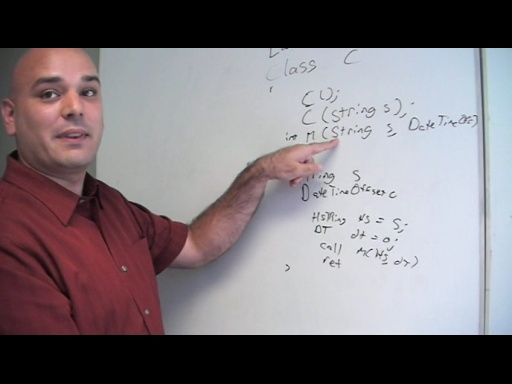 Class C
C();
C (String s);
int M (String s, DateTimeOffse
String S
DateTimeOffset
HString hs = S;
DT dt = o;
call M(hs, dt)
ret
}